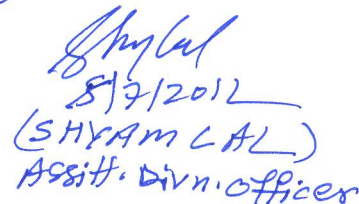 Shylal
5/7/2012
(SHYAM LAL)
Assitt. Divn. officer